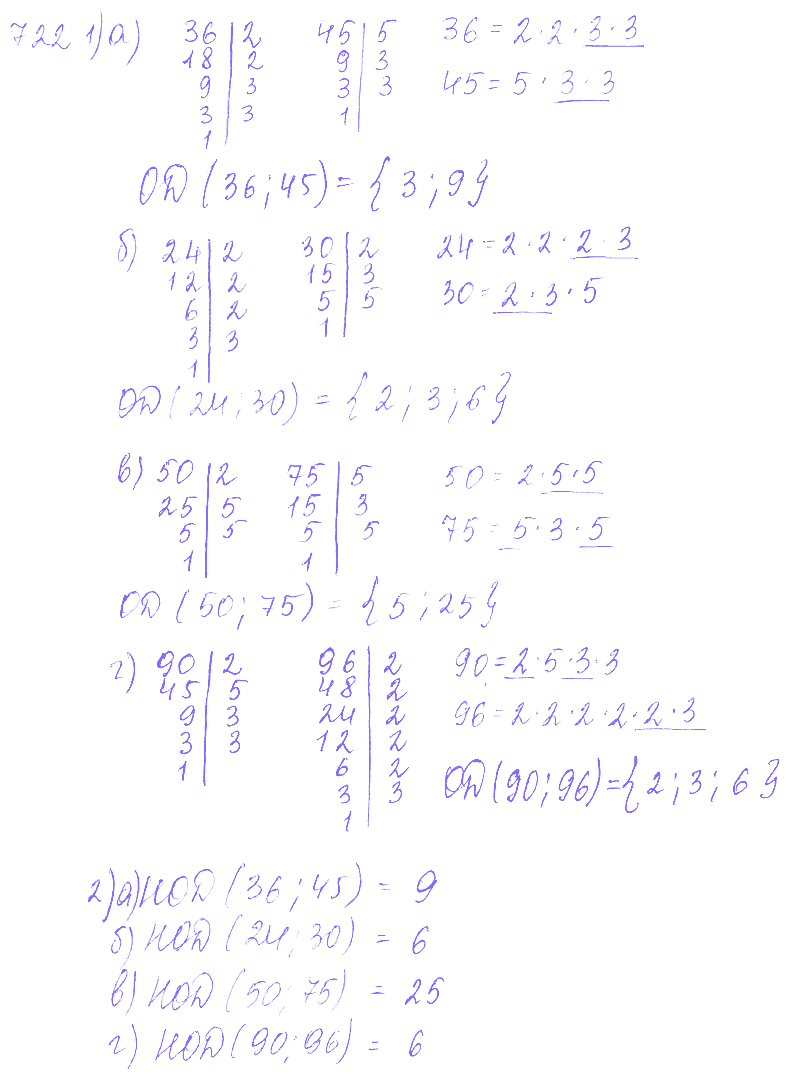 722 1) а) 36 | 2 45 | 5 36 = 2 · 2 · 3 · 3
18 | 2 9 | 3
9 | 3 3 | 3 45 = 5 · 3 · 3
3 | 3 1
1
ОД (36; 45) = {3; 9}
б) 24 | 2 30 | 2 24 = 2 · 2 · 2 · 3
12 | 2 15 | 3
6 | 2 5 | 5 30 = 2 · 3 · 5
3 | 3 1
1
ОД (24; 30) = {2; 3; 6}
в) 50 | 2 75 | 5 50 = 2 · 5 · 5
25 | 5 15 | 3
5 | 5 5 | 5 75 = 5 · 3 · 5
1 1
ОД (50; 75) = {5; 25}
г) 90 | 2 96 | 2 90 = 2 · 5 · 3 · 3
45 | 5 48 | 2
9 | 3 24 | 2 96 = 2 · 2 · 2 · 2 · 2 · 3
3 | 3 12 | 2
1 6 | 2 ОД (90; 96) = {2; 3; 6}
3 | 3
1
2) а) НОД (36; 45) = 9
б) НОД (24; 30) = 6
в) НОД (50; 75) = 25
г) НОД (90; 96) = 6